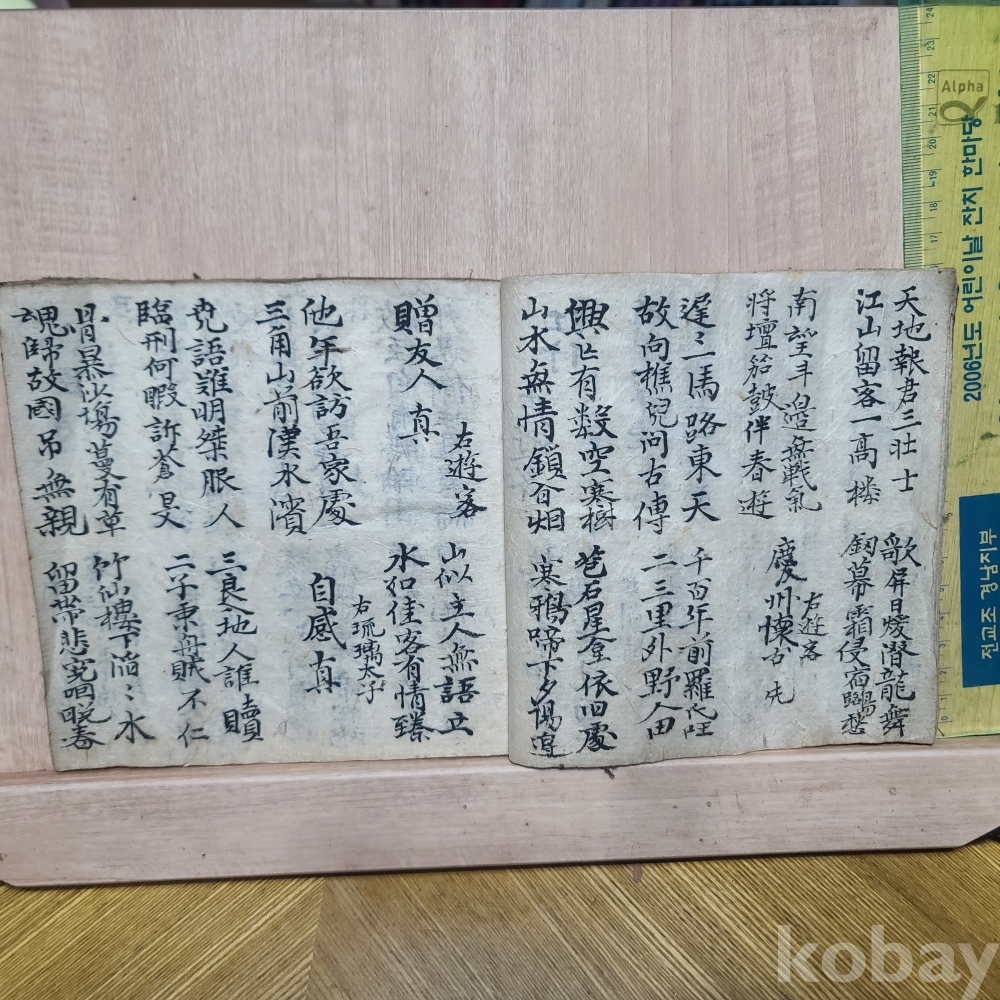 天地報君三壮士
歌屏日暖潛龍舞
江山留客一高樓
釼幕霜侵宿鷗愁
南望斗邉無戰氣
右遊客
將壇笳皷伴春遊
慶州懷古 先
遅二馬路東天
千百年前羅代
故向樵児问古傳
二三里外野人田
興亡有数空寒樹
苍石星登依旧處
山水無情鎖白烟
寒鴉啼下夕陽邉
右遊客
山似主人無語立
贈友人 真
水如佳客有情臻
右琉璃太子
他年欲訪吾家處
自感 真
三角山前漢水濱
尭語難明桀服人
三良入地人誰贖
臨刑何暇訴蒼旻
二子乗舟賊不仁
骨暴沙場蔓有草
竹仙樓下滔ミ水
魂歸故國吊無親
留帶悲寃咽晩春
Alpha
2006년도 어린이날 잔치 한마당
전교조 경남지부
kobay